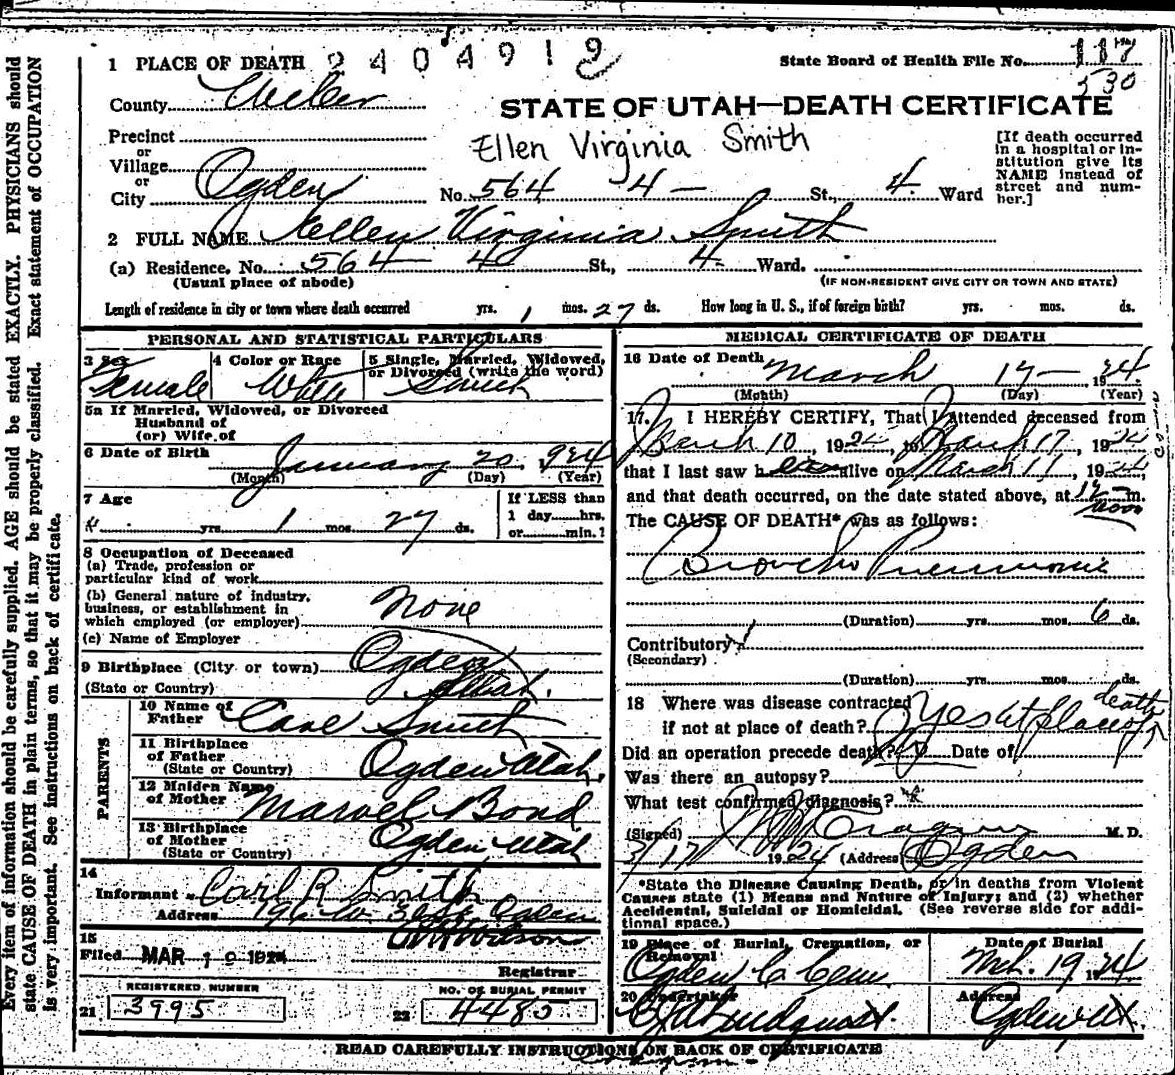 Every item of information should be carefully supplied. AGE should be stated EXACTLY. PHYSICIANS should
state CAUSE OF DEATH in plain terms, so that it may be properly classified. Exact statement of OCCUPATION
is very important. See instructions on back of certificate.
2404919
1 PLACE OF DEATH
State Board of Health File No. 117
530
County Weber
STATE OF UTAH—DEATH CERTIFICATE
Ellen Virginia Smith
Precinct
or
Village
or
City Ogden
No. 564 4 - St., 4 Ward
[If death occurred
in a hospital or in-
stitution give its
NAME instead of
street and num-
ber.]
2 FULL NAME Ellen Virginia Smith
(a) Residence, No. 564 4 St., 4 Ward.
(Usual place of abode)
(IF NON-RESIDENT GIVE CITY OR TOWN AND STATE)
Length of residence in city or town where death occurred yrs. 1 mos. 27 ds. How long in U. S., if of foreign birth? yrs. mos. ds.
PERSONAL AND STATISTICAL PARTICULARS
3 Sex Female
4 Color or Race White
5 Single, Married, Widowed,
or Divorced (write the word)
5a If Married, Widowed, or Divorced
Husband of
(or) Wife of
6 Date of Birth January 20 924
(Month) (Day) (Year)
7 Age
yrs. 1 mos. 27 ds.
If LESS than
1 day hrs.
or min.?
8 Occupation of Deceased
(a) Trade, profession or
particular kind of work
(b) General nature of industry,
business, or establishment in
which employed (or employer) None
(c) Name of Employer
9 Birthplace (City or town) Ogden
(State or Country) Utah.
PARENTS
10 Name of
Father Carl Smith
11 Birthplace
of Father
(State or Country) Ogden Utah.
12 Maiden Name
of Mother Marvel Bond
13 Birthplace
of Mother
(State or Country) Ogden Utah
14
Informant Carl R Smith
Address Ogden
15
Filed MAR 19 1924
Registrar
REGISTERED NUMBER
21 3995
NO. OF BURIAL PERMIT
22 4485
MEDICAL CERTIFICATE OF DEATH
16 Date of Death March 17 — , 1924
(Month) (Day) (Year)
17. I HEREBY CERTIFY, That I attended deceased from
March 10, 1924, to March 17, 1924
that I last saw her alive on March 11, 1924,
and that death occurred, on the date stated above, at 12 m.
noon
The CAUSE OF DEATH* was as follows:
Broncho Pneumonia
(Duration) yrs. mos. 6 ds.
Contributory
(Secondary)
(Duration) yrs. mos. ds.
18 Where was disease contracted
if not at place of death? Yes at place of death
Did an operation precede death? No Date of
Was there an autopsy?
What test confirmed diagnosis?
(Signed) M. D.
3/17 1924 (Address) Ogden
*State the Disease Causing Death, or in deaths from Violent
Causes state (1) Means and Nature of Injury; and (2) whether
Accidental, Suicidal or Homicidal. (See reverse side for addi-
tional space.)
19 Place of Burial, Cremation, or
Removal
Ogden C Cem.
Date of Burial
Mch. 19, 1924
20 Undertaker
Lindquist.
Address
Ogden Ut.
READ CAREFULLY INSTRUCTIONS ON BACK OF CERTIFICATE